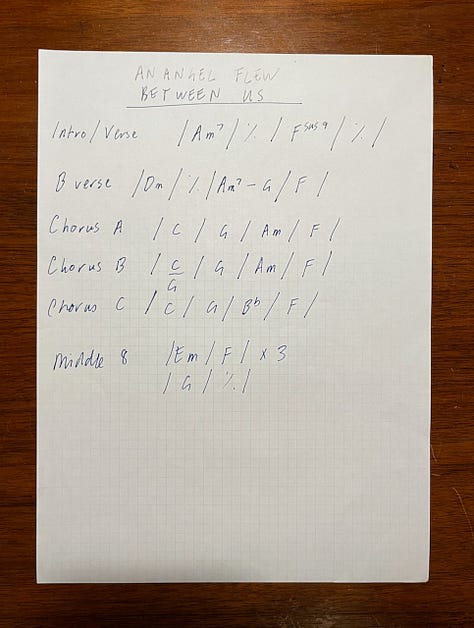 AN ANGEL FLEW
BETWEEN US
Intro/Verse | Am⁷ | % | Fsus9 | % |
B verse | Dm | % | Am⁷ - G | F |
Chorus A | C | G | Am | F |
Chorus B | C/G | G | Am | F |
Chorus C | C | G | Bb | F |
Middle 8 | Em | F | x 3
| G | % |